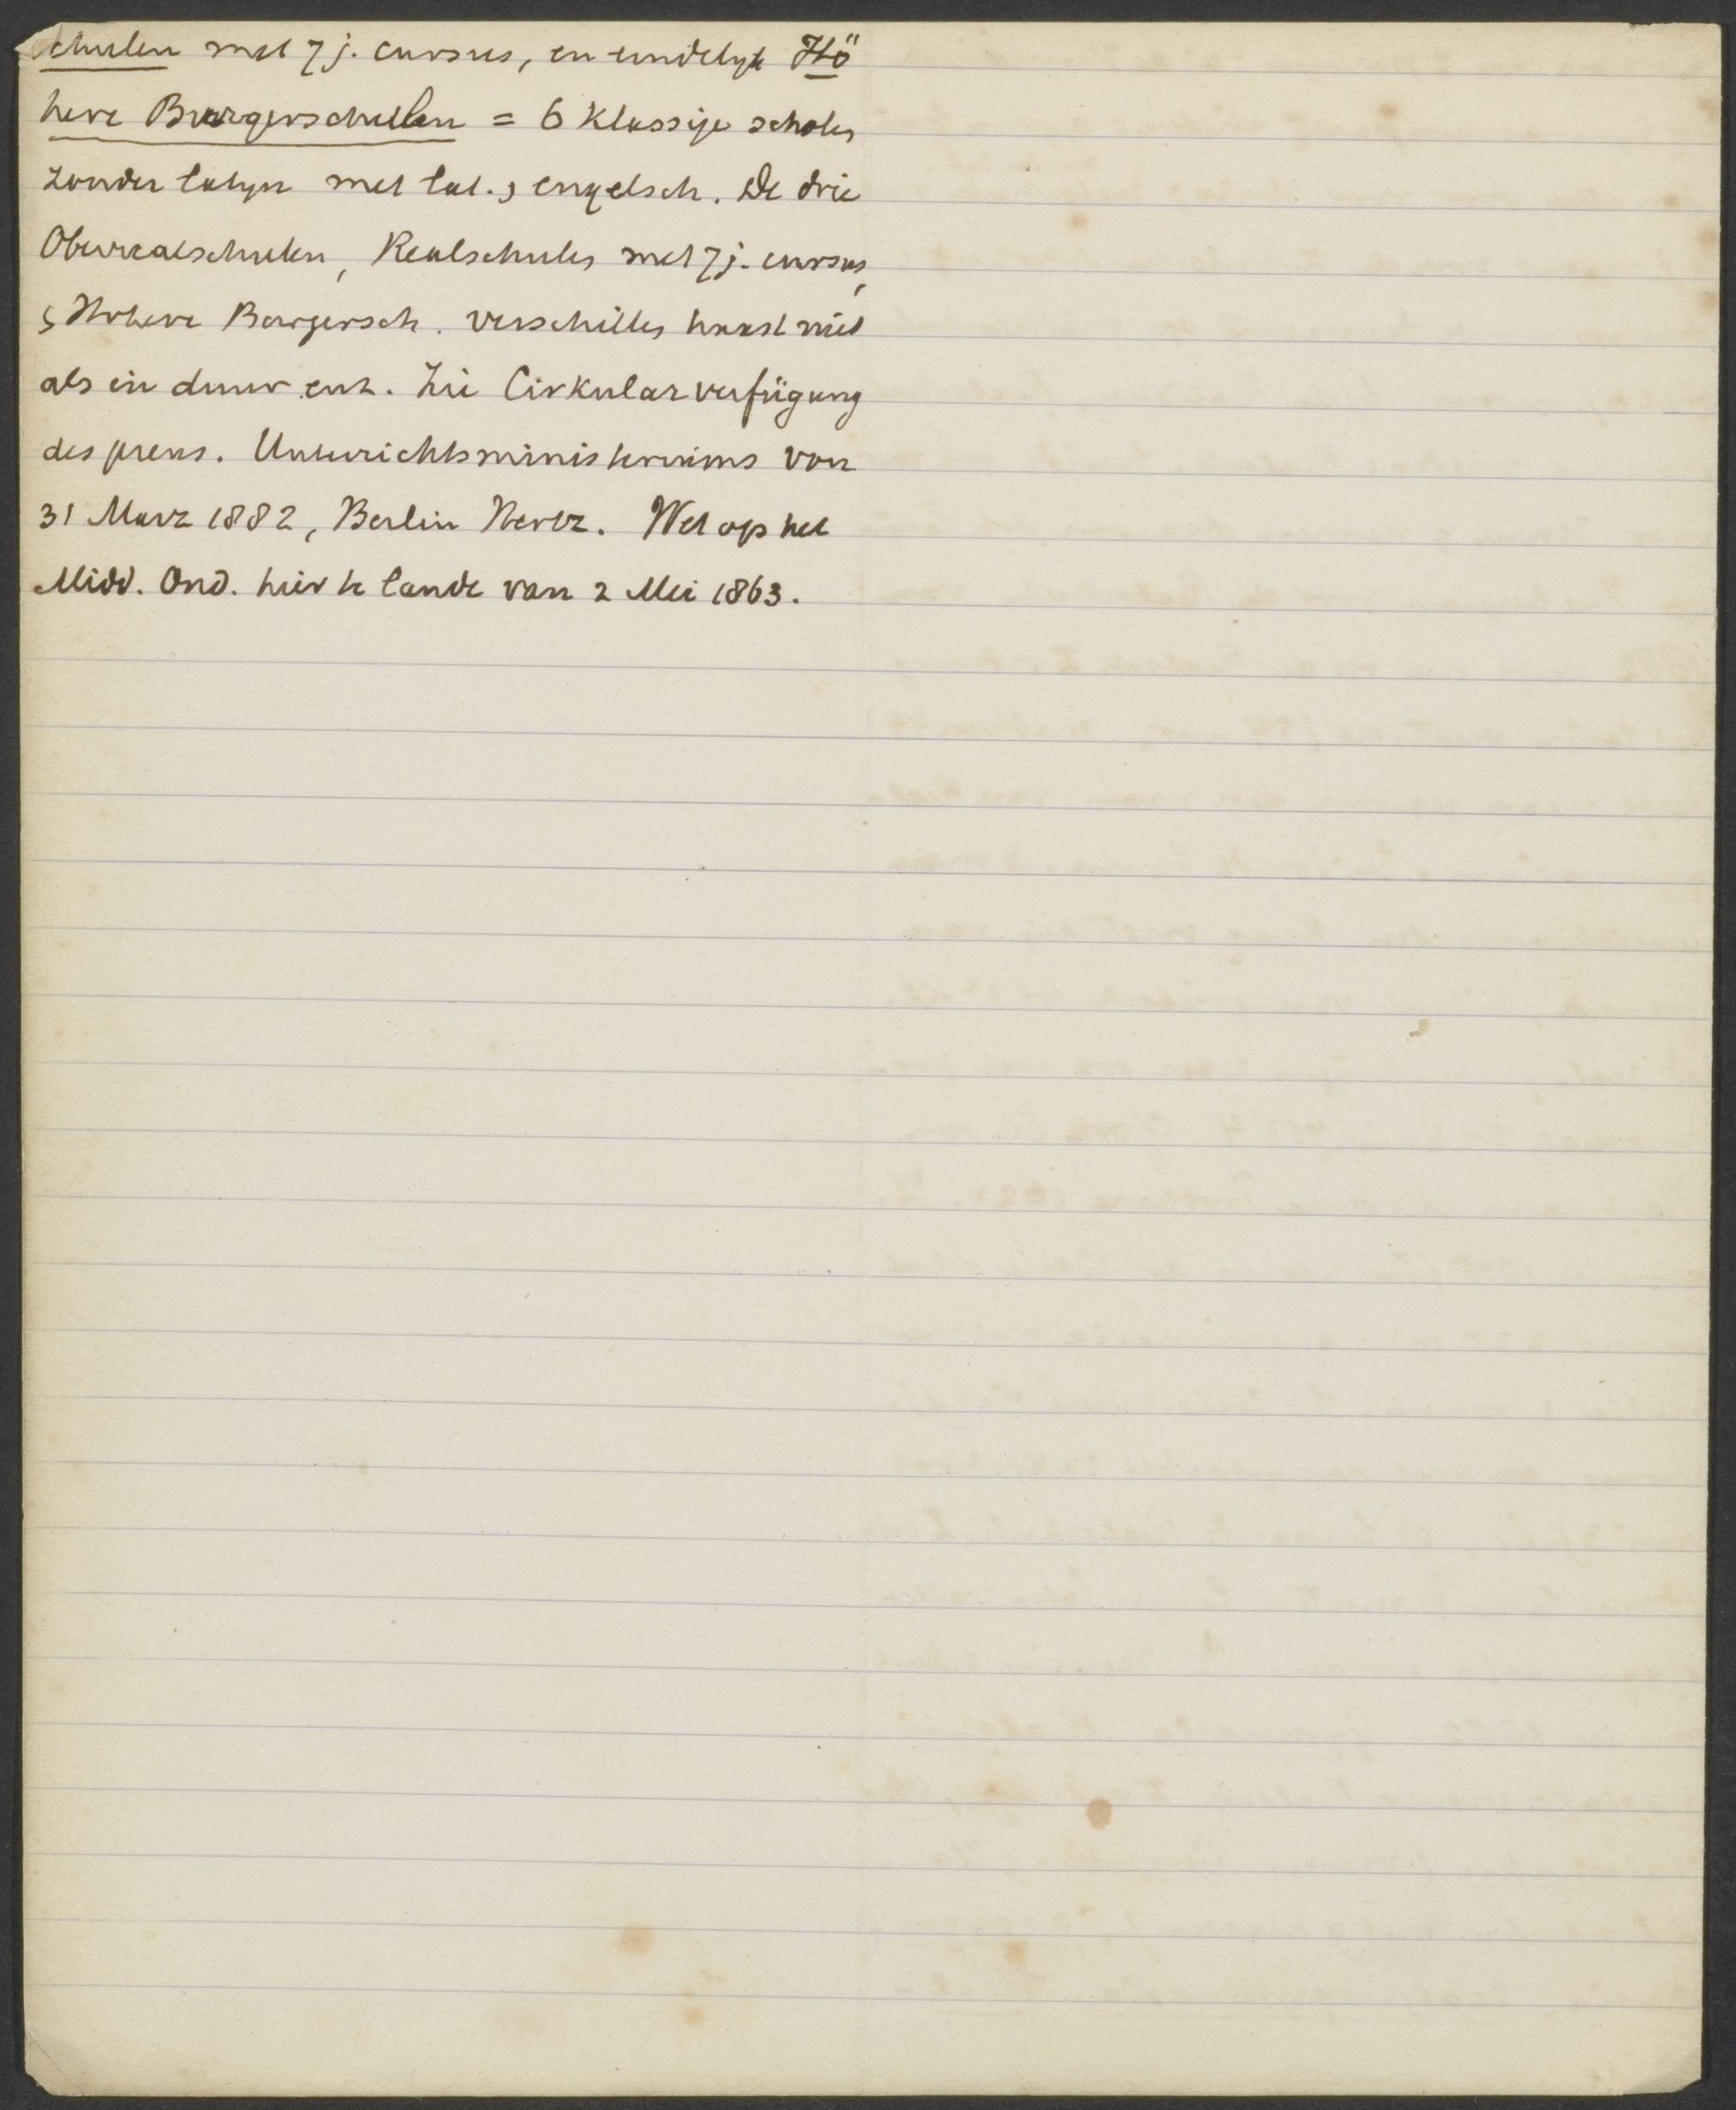 schulen met 7 j. cursus, en eindelyk Hö
here Burgerschulen = 6 klassige scholen
zonder latyn met lat. & engelsch. De drie
Oberrealschulen, Realschulen met 7 j. cursus,
& Höhere Bürgersch. verschillen haast niet
als in duur enz. Zie Cirkularverfügung
des preus. Unterrichtsministeriums von
31 Marz 1882, Berlin Hertz. Wet op het
Midd. Ond. hier te lande van 2 Mei 1863.